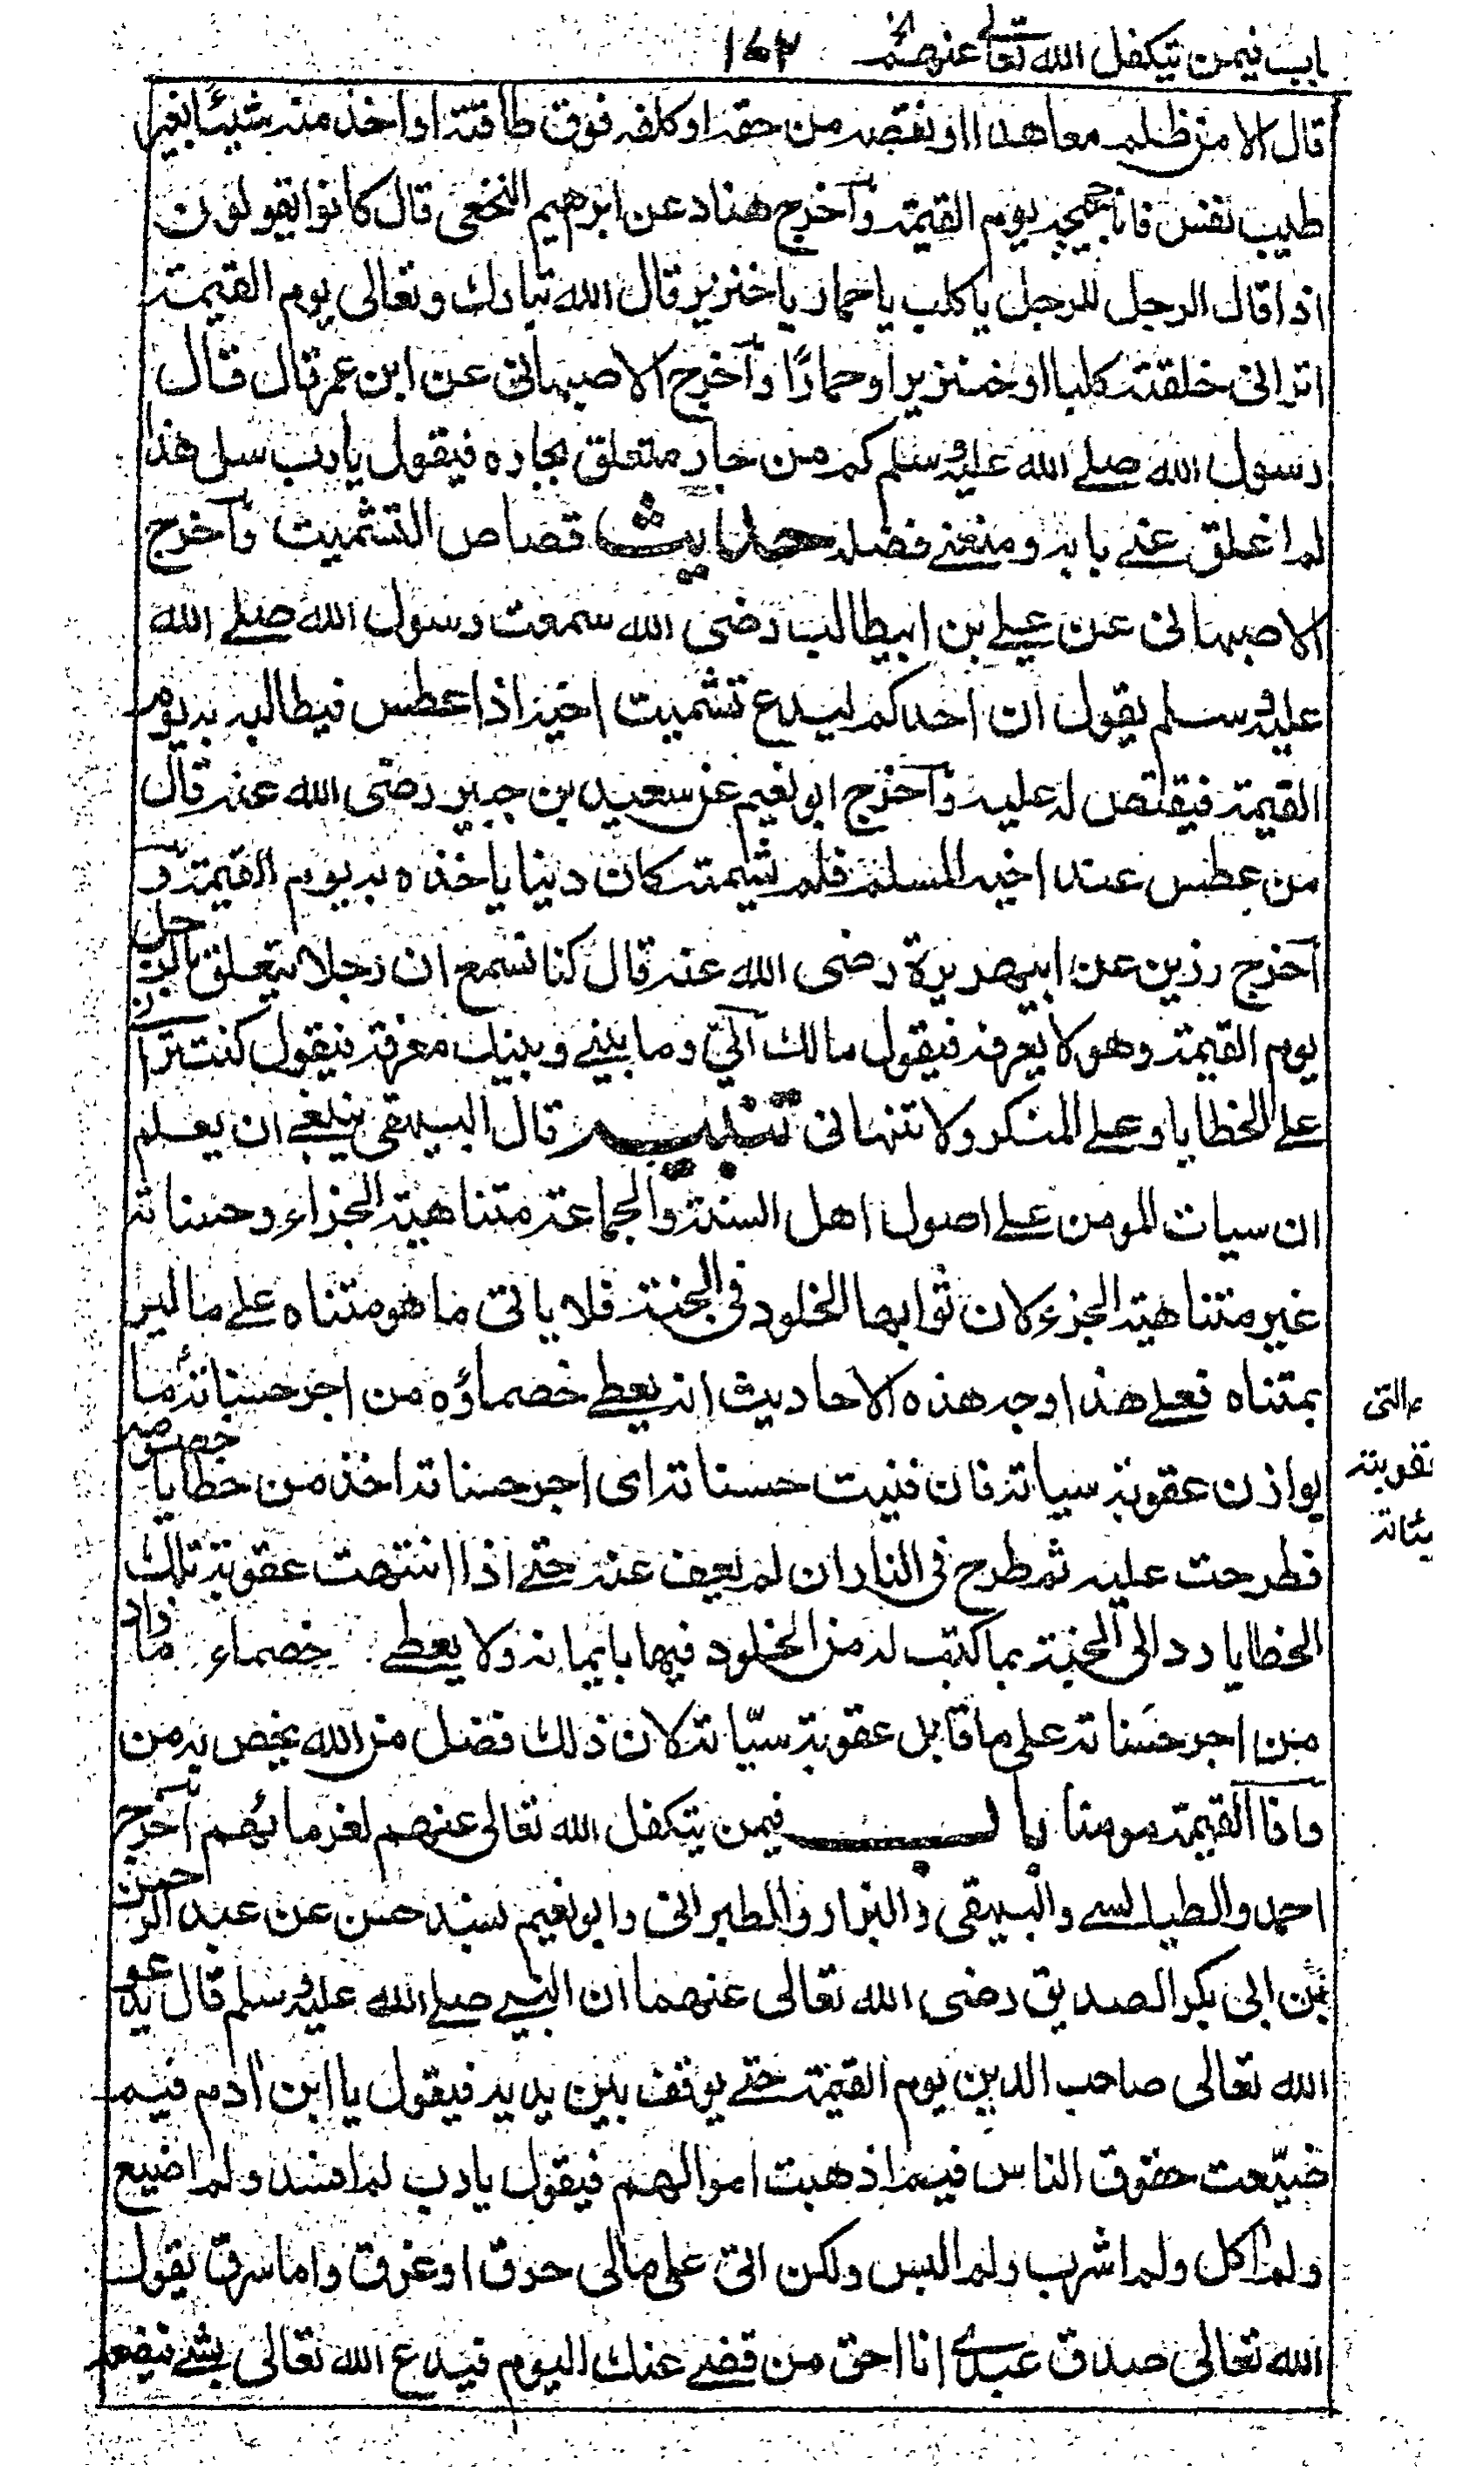 باب فيمن يتكفل الله تعالى عنهم ١٧٢
قال الا من ظلم معاهدا او نقصه من حقه او كلفه فوق طاقته او اخذ منه شيئا بغير
طيب نفس فانا حجيجه يوم القيمة وآخرج هناد عن ابرهيم النخعى قال كانوا يقولون
اذا قال الرجل للرجل يا كلب يا حمار يا خنزير قال الله تبارك وتعالى يوم القيمة
اترانى خلقته كلبا او خنزيرا او حمارًا وآخرج الاصبهانى عن ابن عمر قال قال
رسول الله صلے الله عليه وسلم كم من جار متعلق بجاره فيقول يا رب سل هذا
لم اغلق عنے بابه ومنعنے فضله حدايث قصاص التشميت وآخرج
الاصبهانى عن علے بن ابيطالب رضى الله سمعت رسول الله صلے الله
عليه وسلم يقول ان احدكم ليدع تشميت اخيه اذا عطس فيطالبه به يوم
القيمة فيقتص له عليه وآخرج ابو نعيم عن سعيد بن جبير رضى الله عنه قال
من عطس عند اخيه المسلم فلم شيمته كان دينا ياخذه به يوم القيمة و
آخرج رزين عن ابيهريرة رضى الله عنه قال كنا نسمع ان رجلا يتعلق بالرجل
يوم القيمة وهو لا يعرفه فيقول مالك الىّ وما بينے وبينك معرفة فيقول كنت ترانے
علے الخطايا وعلے المنكر ولا تنهانى تنبيه قال البيهقى ينبغے ان يعلم
ان سيات المومن علے اصول اهل السنة والجماعة متناهية الجزاء وحسناته
غير متناهية الجزء لان ثوابها الخلود فى الجنة فلا ياتى ما هو متناه علے ما ليس
بمتناه فعلے هذا وجه هذه الاحاديث انه يعطے خصماؤه من اجر حسناته ما
يوازن عقوبة سياته فان فنيت حسناته اى اجر حسناته اخذ من خطايا خصومه
فطرحت عليه ثم طرح فى النار ان لم يعف عنه حتے اذا انتهت عقوبة تلك
الخطايا رد الى الجنة بما كتب له من الخلود فيها بايمانه ولا يعطے خصماء ما زاد
من اجر حسناته على ما قابل عقوبة سيّاته لان ذلك فضل من الله يخص به من
وافا القيمة مومنا باب فيمن يتكفل الله تعالى عنهم لغرمائهم آخرج
احمد والطيالسے والبيهقى والبزار والطبرانى وابو نعيم بسند حسن عن عبد الرحمن
بن ابى بكر الصديق رضى الله تعالى عنهما ان النبے صلے الله عليه وسلم قال يدعو
الله تعالى صاحب الدين يوم القيمة حتے يوقف بين يديه فيقول يا ابن ادم فيم
ضيّعت حقوق الناس فيم اذهبت اموالهم فيقول يا رب لم افسد ولم اضيع
ولم اكل ولم اشرب ولم البس ولكن اتى على مالى حرق او غرق واما سرق يقول
الله تعالى صدق عبدے انا احق من قضے عنك اليوم فيدع الله تعالى بشے فيضعه
التى